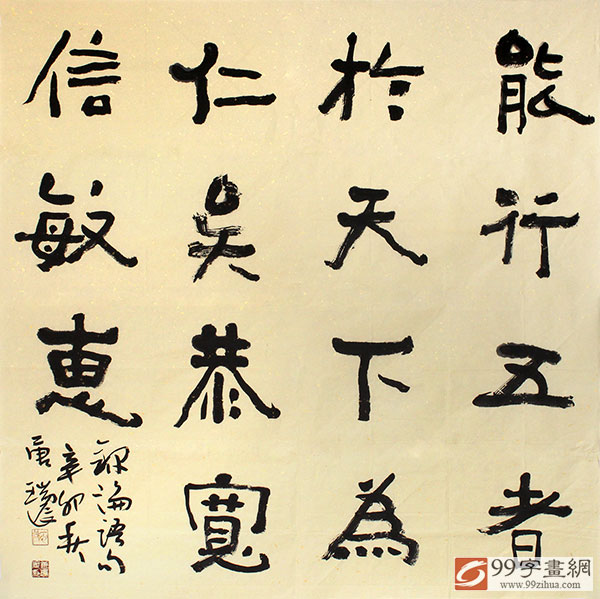 能行五者
於天下為
仁矣恭寬
信敏惠
錄論語句
辛卯
99字畫網
www.99zihua.com